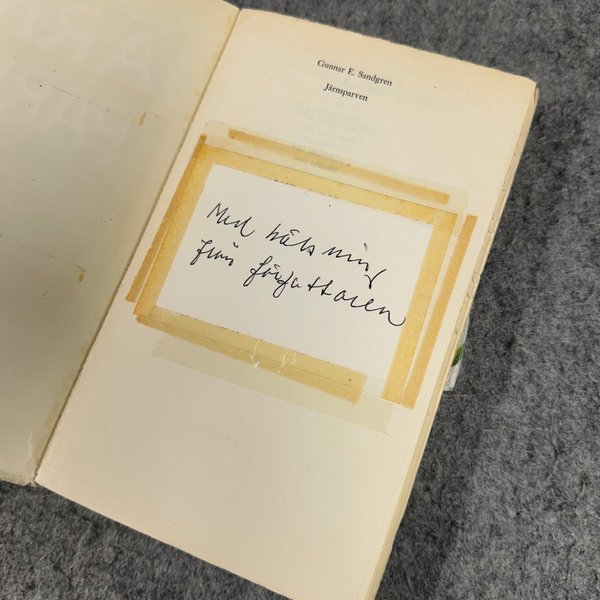 Gunnar E. Sandgren
Järnsparven
Med hälsning
från författaren